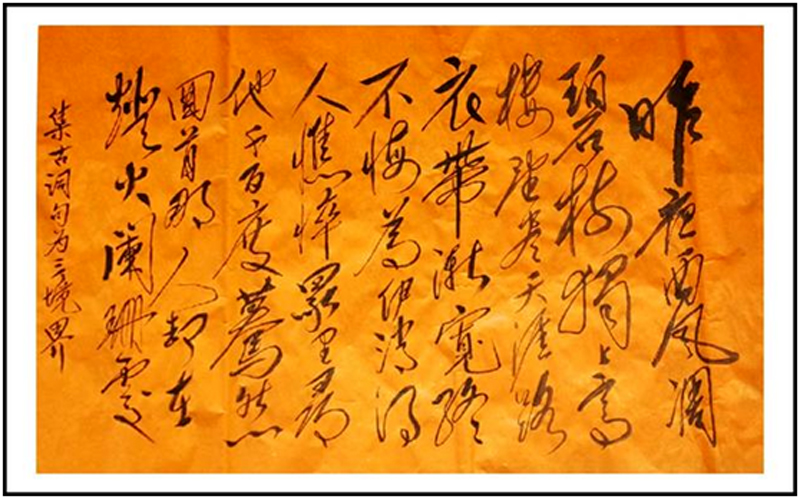 昨夜西风凋
碧树獨上高
楼望尽天涯路
衣带漸寛終
不悔為伊消得
人憔悴衆里尋
他千百度驀然
回首那人却在
燈火闌珊處
集古词句为三境界